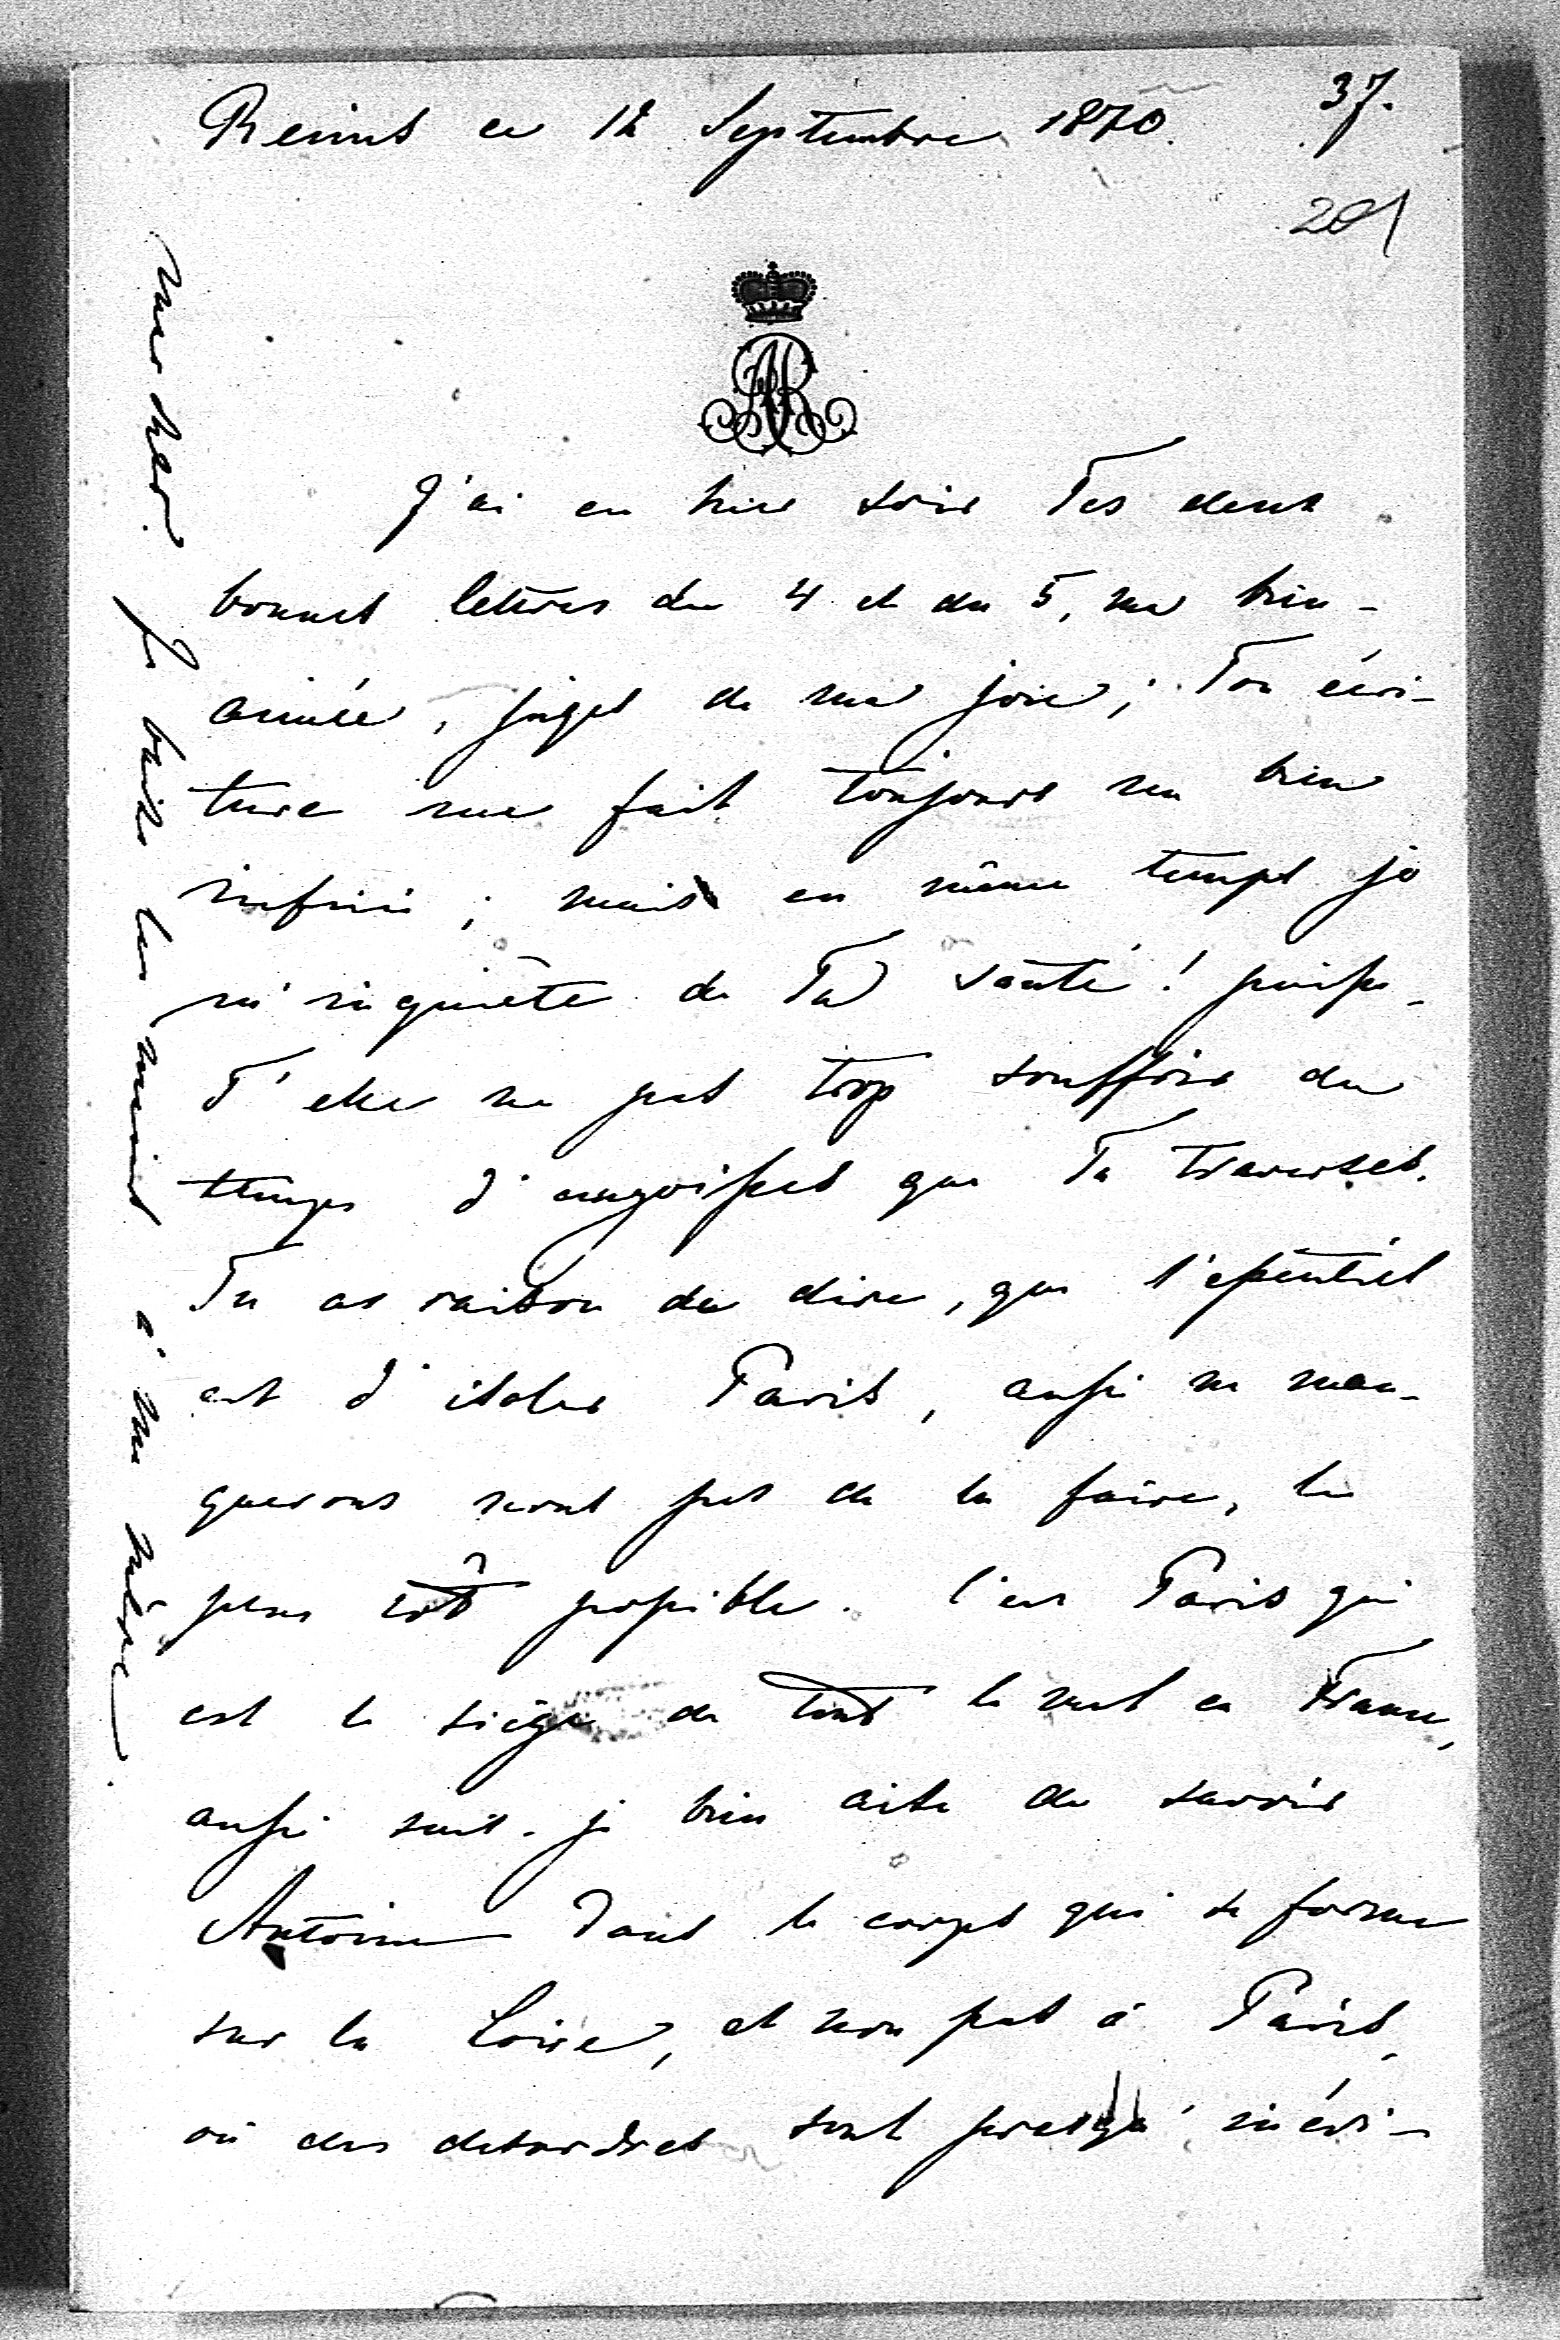 Reims ce 12 Septembre 1870.
37.
201
AR
J'ai eu hier soir Tes deux
bonnes lettres du 4 et du 5, ma bien-
aimée, juges de ma joie; Ton écri-
ture me fait toujours un bien
infini; mais en même temps je
m'inquiète de Ta santé! puisse-
T'elle ne pas trop souffrir du
temps d'angoisses que Tu traverses.
Tu as raison de dire, que l'essentiel
est d'isoler Paris, aussi ne man-
querons nous pas de le faire, le
plus tôt possible. C'est Paris qui
est le siège de tout le mal en France,
aussi suis-je bien aise de savoir
Antoine dans le corps qui se forme
sur la Loire, et non pas à Paris,
où des desordres sont presqu' inévi-
Je baise les mains à ma mère.